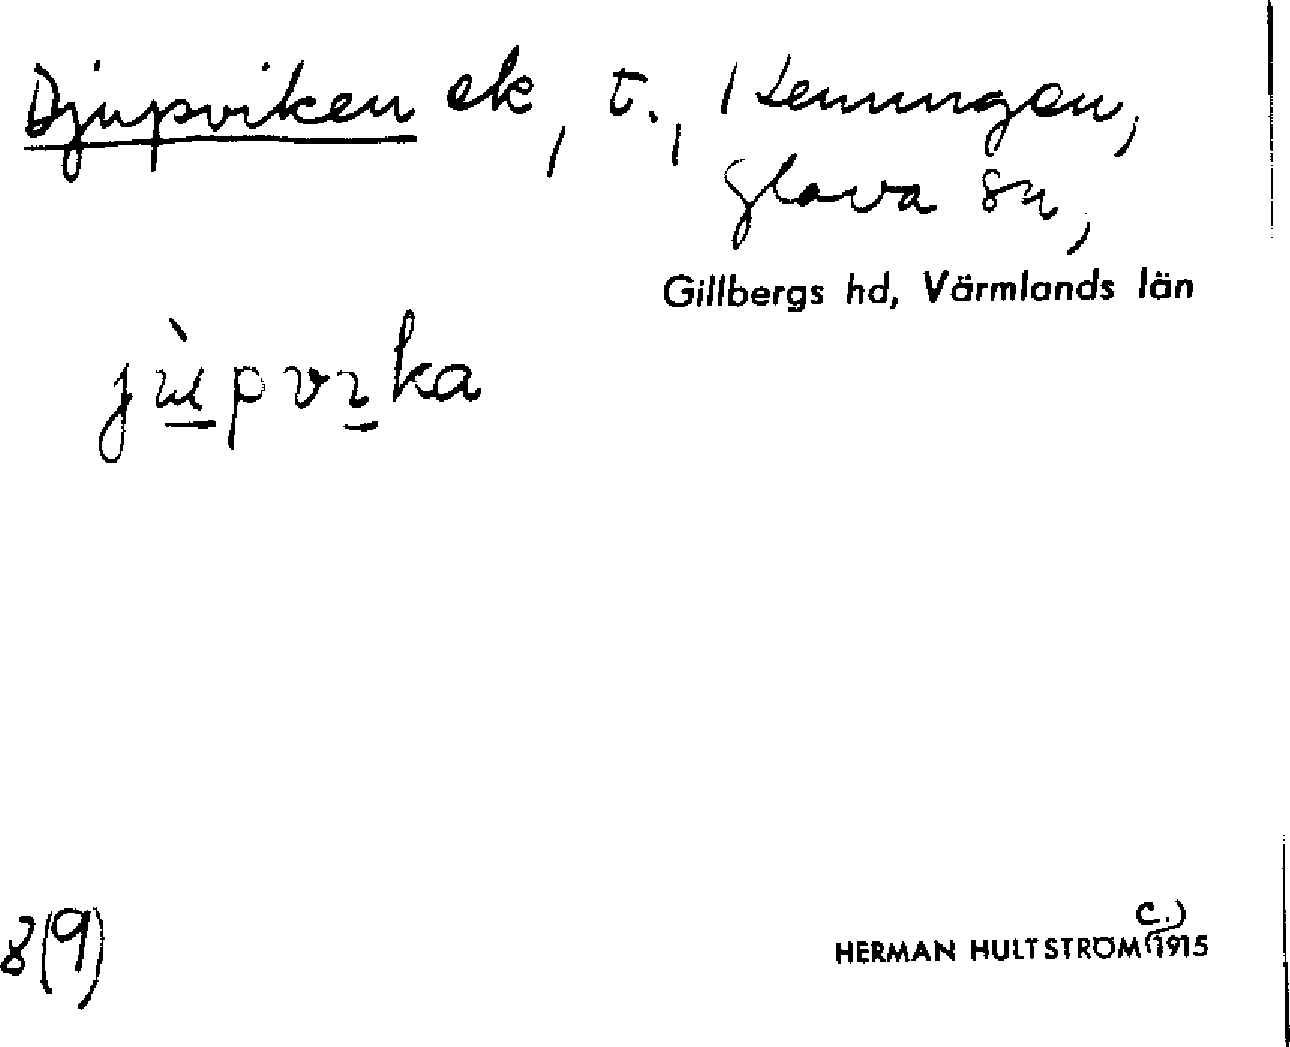 Djupviken ek, t., Hemungen,
Glava sn,
Gillbergs hd, Värmlands län
jùpvıka
8(9)
c.)
HERMAN HULTSTRÖM (1915